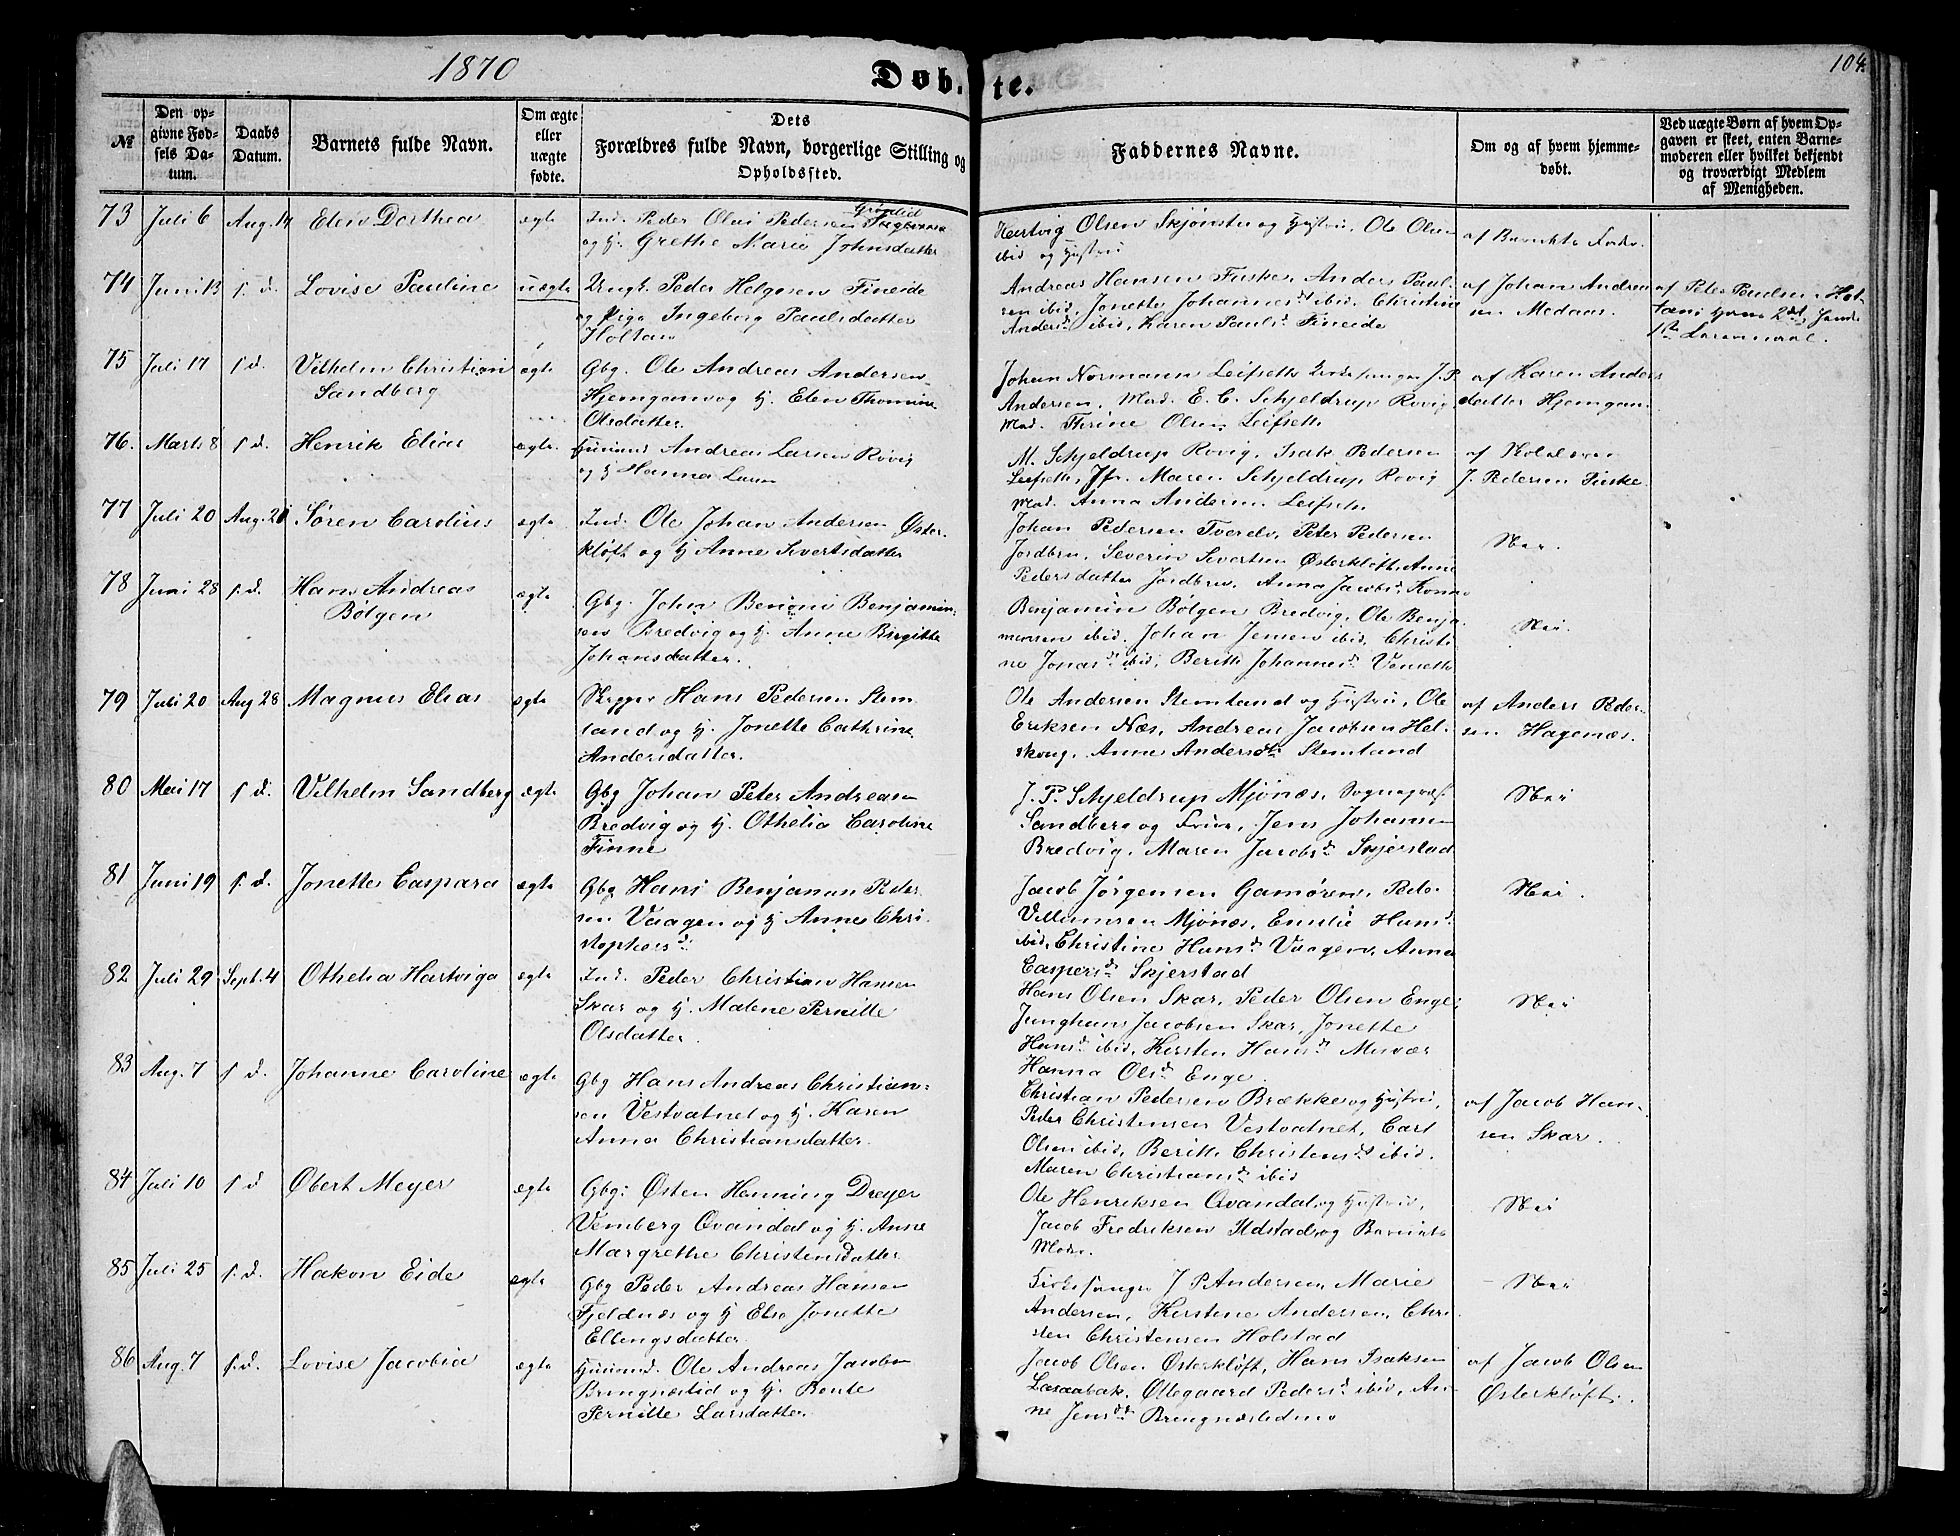 1870
Døbte.
104
№
Den opgivne Fødsels Datum.
Daabs Datum.
Barnets fulde Navn.
Om ægte eller uægte fødte.
Dets Forældres fulde Navn, borgerlige Stilling og Opholdssted.
Faddernes Navne.
Om og af hvem hjemmedøbt.
Ved uægte Børn af hvem Opgaven er skeet, enten Barnemoderen eller hvilket bekjendt og troværdigt Medlem af Menigheden.
73 Juli 6 Aug. 14 Elen Dorthea ægte Ind. Peder Olai Pedersen Grønlid
og h. Grethe Marie Johnsdatter
Hertvig Olsen Skjønstu og Hustru, Ole Olsen
ibid og Hustru
af Barnets Fader
74 Juni 13 s. d. Lovise Pauline uægte Ungk. Peder Helgesen Fineide
og Pige Ingeborg Paulsdatter
Holtan
Andreas Hansen Fuske, Anders Paul-
sen ibid, Jonette Johannesd. ibid, Christina
Andersd. ibid, Karen Paulsd. Fineide
af Johan Andrea
sen Medaas
af Peter Paulsen Hol-
tan
75 Juli 17 s d. Vilhelm Christian
Sandberg
ægte Gbg. Ole Andreas Andersen
Hjemgam og h. Elen Thomine
Olsdatter.
Johan Normann Leifsett, Kirkesanger J. P.
Andersen, Mad. E. C. Schjeldrup Rovig
Mad. Thrine Olsen Leifsett
af Karen Anders
datter Hjemgam
76. Marts 8 s d. Henrik Elias ægte Husmd Andreas Larsen Rovig
og h Hanna Larsen
M. Schjeldrup Rovig, Isak Pedersen
Leifsett, Jfr. Maren Schjeldrup Rovig
Mad. Anna Andersen Leifsett
af Skolelærer
J. Pedersen Fuske
77 Juli 20 Aug. 21 Søren Carolius ægte Ind. Ole Johan Andersen Øster-
kløft og h Anne Sivertsdatter
Johan Pedersen Tverelv, Peter Pedersen
Jordbru, Severin Sivertsen Østerkløft, Anne
Pedersdatter Jordbru, Anna Jacobsd.
Nei.
78 Juni 28 s. d. Hans Andreas
Bölgen
ægte Gbg. John Benoni Benjamin-
sen Bredvig og h. Anne Birgitte
Johansdatter.
Benjamin Bölgen Bredvig, Ole Benja-
minsen ibid, Johan Jensen ibid, Christi
ne Jonasd. ibid, Beritte Johannesd. Venset
Nei.
79 Juli 20 Aug 28 Magnus Elias ægte Hans Pedersen Stem-
land og h. Jonette Cathrine
Andersdatter.
Ole Andersen Stemland og Hustru, Ole
Eriksen Næs, Andreas Jacobsen Hel-
skoug, Anne Andersdtr Stemland
af Anders Peder-
sen Hagenæs.
80 Mai 17 s d. Vilhelm Sandberg ægte Gbg Johan Peter Andreasen
Bredvig og h. Othelia Caroline
Finne
J. P. Schjeldrup Mjönæs, Sognepræst
Sandberg og Frue, Jens Johansen
Bredvig, Maren Jacobsd. Skjerstad
Nei
81 Juni 19 s. d. Jonette Caspara ægte Gbg Hans Benjamin Peder
sen Vaagen og h Anne Chri-
stophersd.
Jacob Jörgensen Gamören, Peder
Villumsen Mjönæs, Emilie Hansd.
ibid, Christine Hansd. Vaagen, Anna
Caspersd. Skjerstad
Nei.
82 Juli 29 Sept. 4 Othelia Hartviga ægte Ind. Peder Christian Hansen
Skar og h. Malene Pernille
Olsdatter.
Hans Olsen Skar, Peder Olsen Enge,
Junghans Jacobsen Skar, Jonette
Hansd. ibid, Kirsten Hansd. Misvær
Hanna Olsd. Enge.
Nei
83 Aug. 7 s d. Johanne Caroline ægte Gbg Hans Andreas Christian-
sen Vestvatnet og h. Karen
Anna Christiansdatter.
Christian Pedersen Brække og Hustru,
Peder Christensen Vestvatnet, Carl
Olsen ibid, Beritte Christensd. ibid.
Maren Christiansd. ibid
af Jacob Han-
sen Skar.
84 Juli 10 s d Obert Meyer ægte Gbg: Østen Henning Dreyer
Vemberg Qvandal og h. Anne
Margrethe Christensdatter
Ole Henriksen Qvandal og Hustru,
Jacob Fredriksen Ildstad og Barnets
Moder.
Nei
85 Juli 25 s. d. Hakon Eide ægte Gbg Peder Andreas Hansen
Fjeldnæs og h Else Jonette
Ellingsdatter
Kirkesanger J P Andersen, Marie
Andersen, Kirstine Andersen, Chri-
sten Christensen Holstad
Nei
86 Aug. 7 s. d. Lovise Jacobia ægte Husmd. Ole Andreas Jacobsen
Bringnæslid og h. Bente
Pernille Larsdatter.
Jacob Olsen Østerkløft, Hans Isaksen
Laxaabak, Ollegaard Pedersd. ibid, An-
ne Jensdtr Bringnæslid
af Jacob Olsen
Østerkløft.